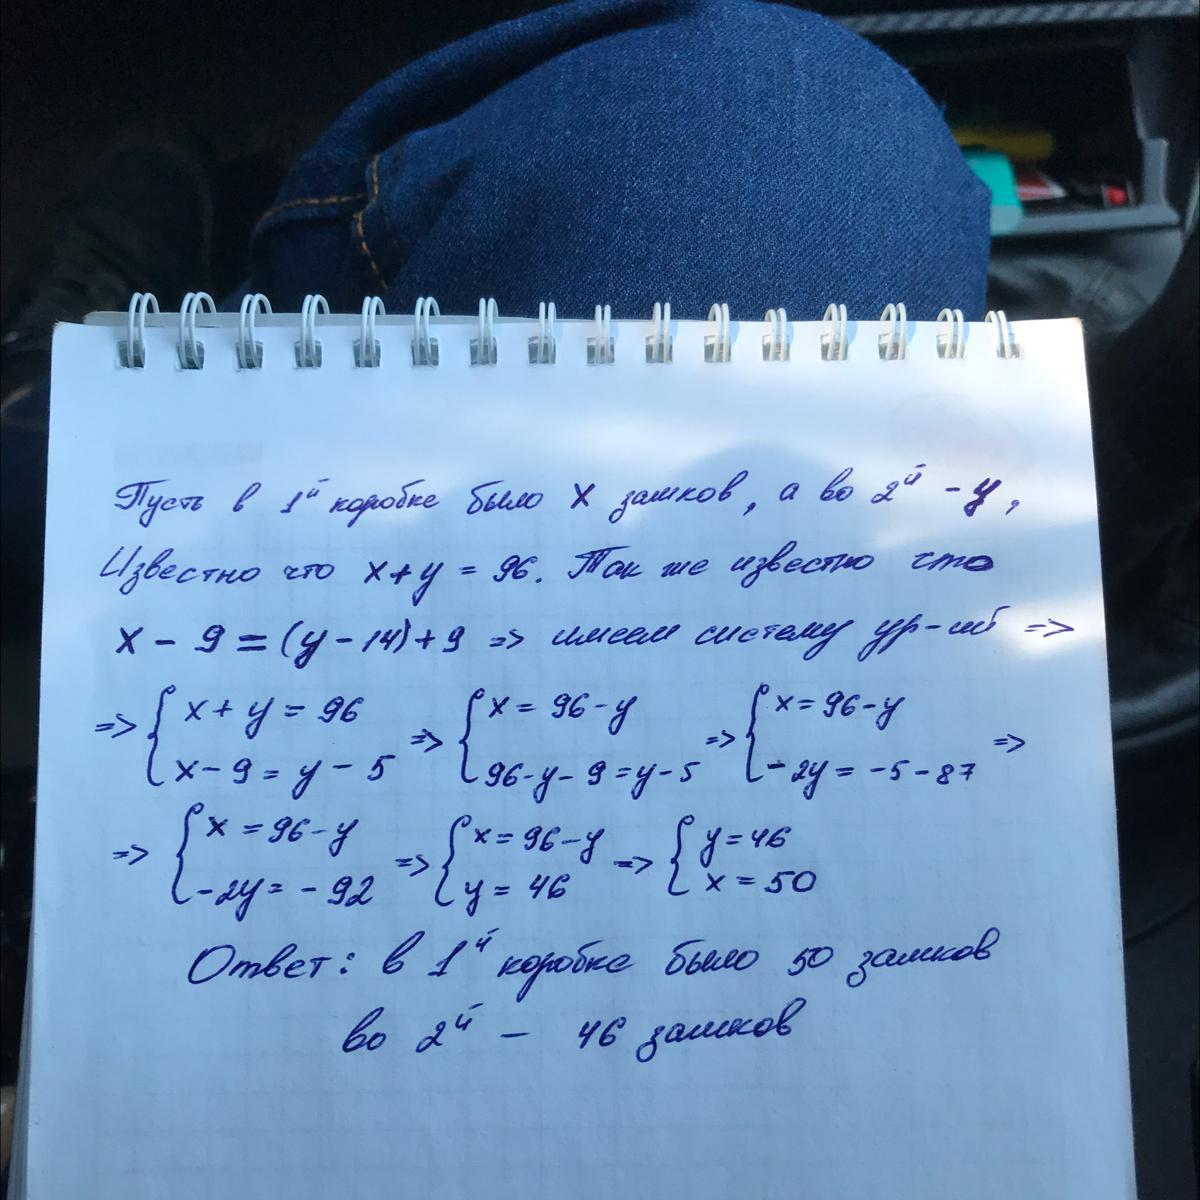 Пусть в 1й коробке было x замков, а во 2й - y,
Известно что x + y = 96. Так же известно что
x - 9 = (y - 14) + 9 => имеем систему ур-ий =>
=> { x + y = 96 => { x = 96 - y => { x = 96 - y =>
x - 9 = y - 5 96 - y - 9 = y - 5 - 2y = -5 - 87
=> { x = 96 - y => { x = 96 - y => { y = 46
-2y = - 92 y = 46 x = 50
Ответ: в 1й коробке было 50 замков
во 2й - 46 замков